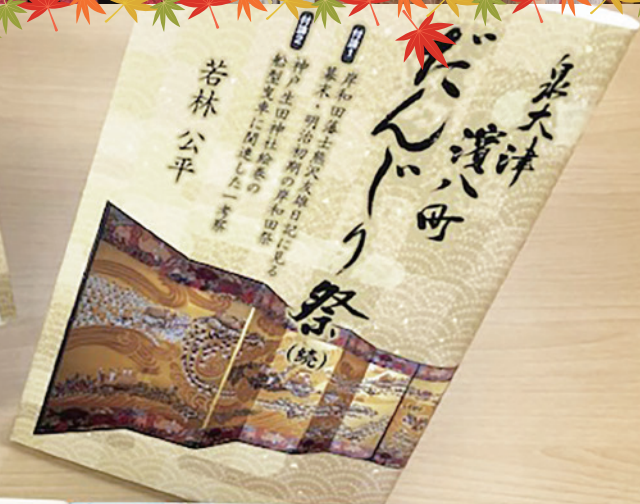 泉大津
濱八町
だんじり祭
(続)
付論1
岸和田藩士熊沢友雄日記に見る
幕末・明治初期の岸和田祭
付論2
神戸・生田神社絵巻の
船型曳車に関連した一考察
若林 公平